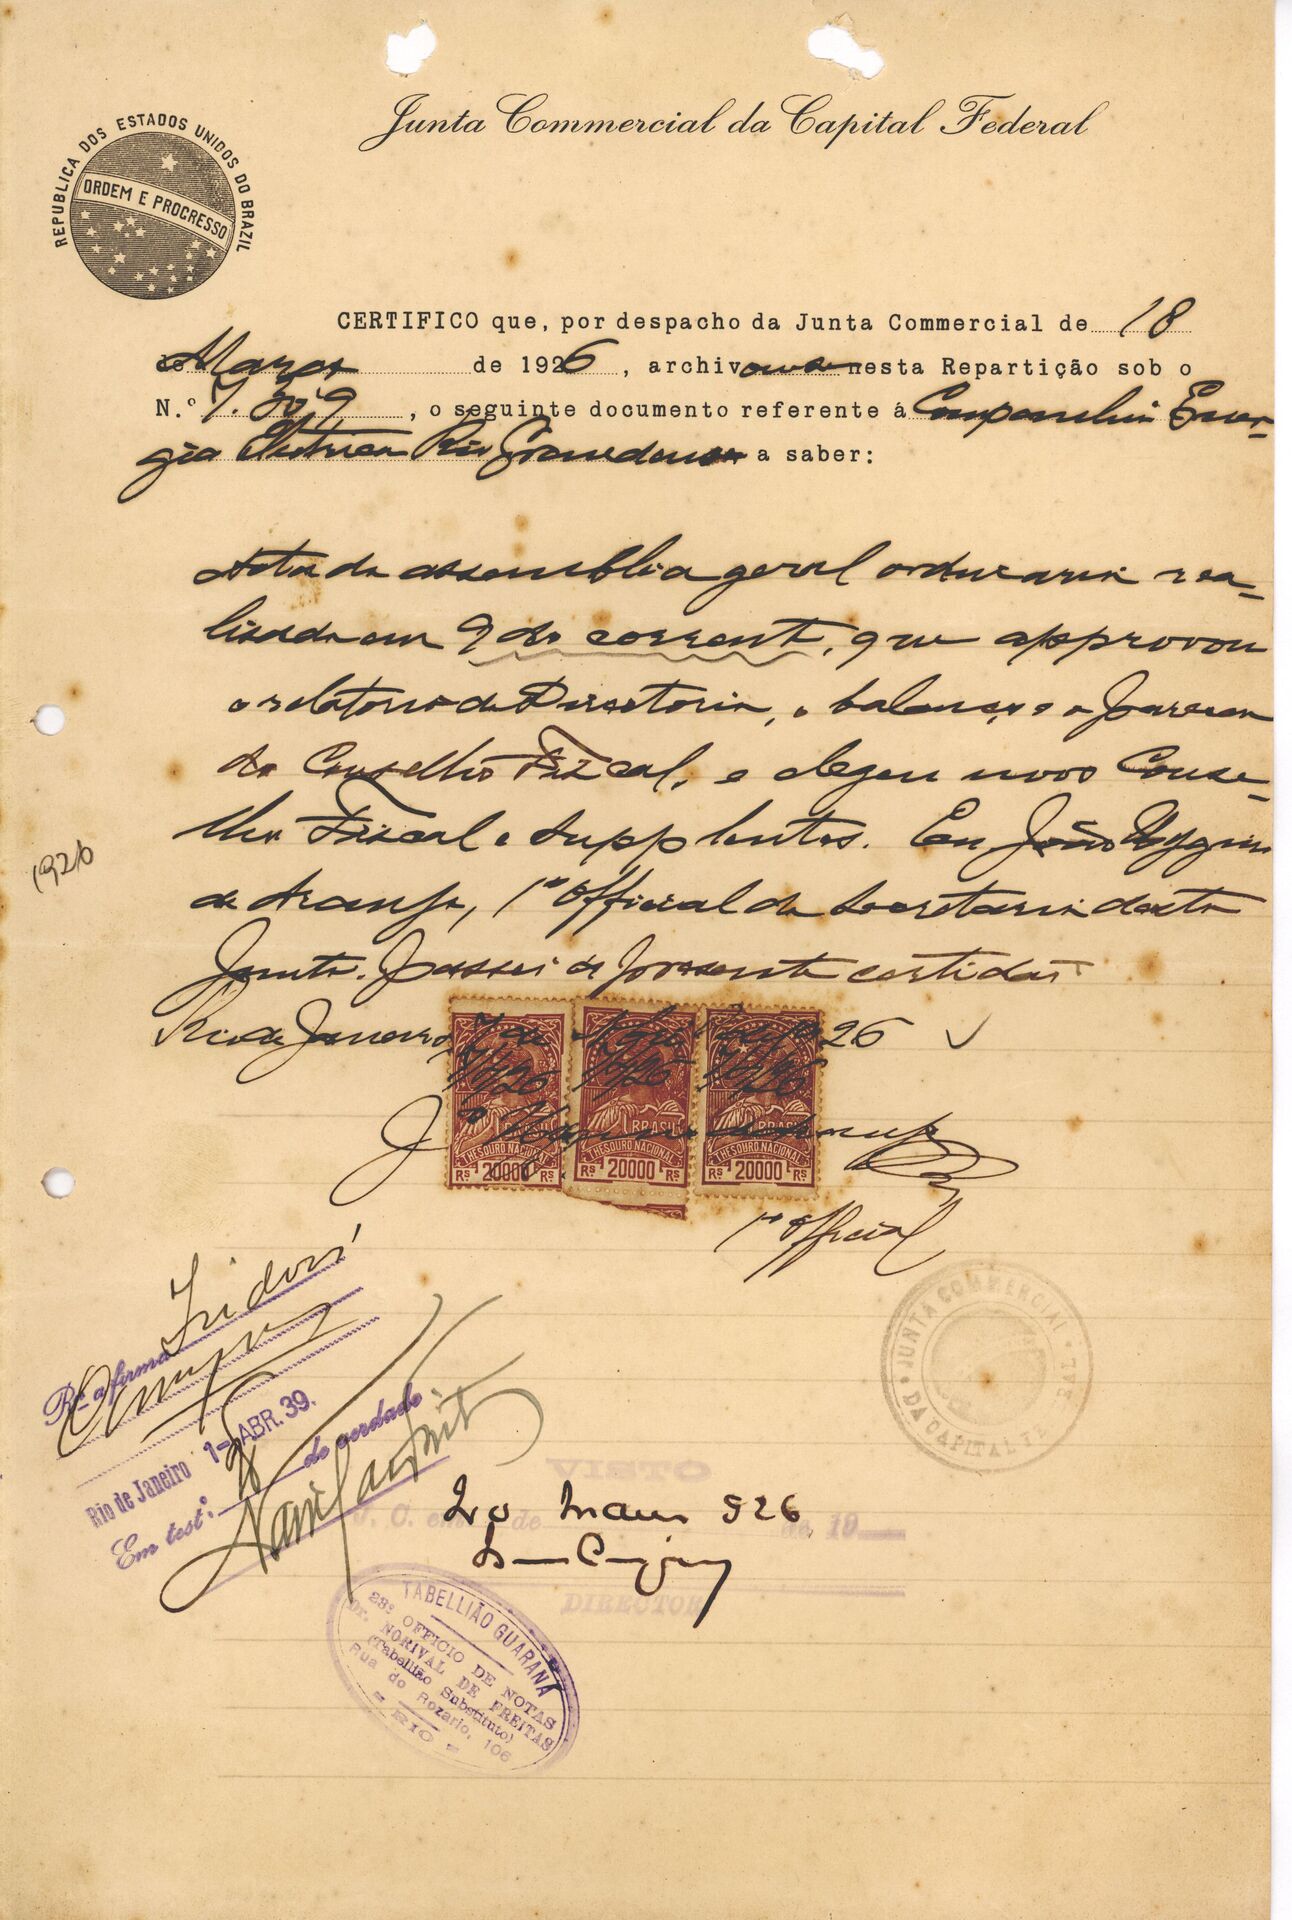 Junta Commercial da Capital Federal
REPUBLICA DOS ESTADOS UNIDOS DO BRAZIL
ORDEM E PROGRESSO
CERTIFICO que, por despacho da Junta Commercial de 18
de Março de 1926, archivou-se nesta Repartição sob o
N.º 7.309, o seguinte documento referente á Companhia Ener-
gia Electrica Rio Grandense a saber:
Acta da assemblia geral ordinaria rea-
lisada em 9 do corrente, que approvou
o relatorio da Directoria, o balanço e o parecer
do Conselho Fiscal, e elegeu novos Conse-
lho Fiscal e supplentes. Eu João Hygino
de Araujo, 1º Official da Secretaria desta
Junta. Passei a presente certidão
1926
Rio de Janeiro, de 1926
BRASIL
THESOURO NACIONAL
Rs 20000 Rs
BRASIL
THESOURO NACIONAL
Rs 20000 Rs
BRASIL
THESOURO NACIONAL
Rs 20000 Rs
1º Official
JUNTA COMMERCIAL
DA CAPITAL
Rc. a firma Isidoro
Campos
Rio de Janeiro 1-ABR.39.
Em test.º de verdade
VISTO
J. C. em de de 19
20 926
DIRECTOR
TABELLIÃO GUARANÁ
23º OFFICIO DE NOTAS
Dr. NORIVAL DE FREITAS
(Tabellião Substituto)
Rua do Rozario, 106
= RIO =